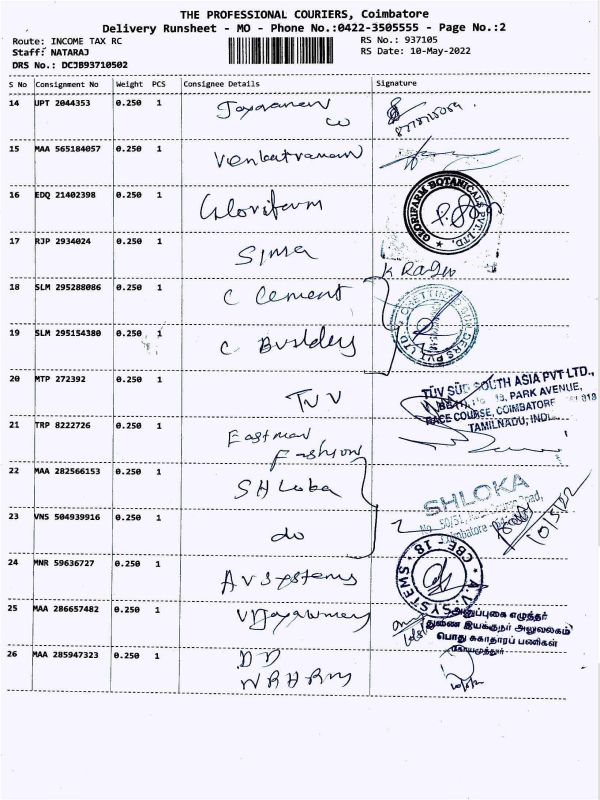 THE PROFESSIONAL COURIERS, Coimbatore
Delivery Runsheet - MO - Phone No.:0422-3505555 - Page No.:2
Route: INCOME TAX RC
Staff: NATARAJ
RS No.: 937105
RS Date: 10-May-2022
DRS No.: DCJB93710502
S No Consignment No Weight PCS Consignee Details Signature
14 UPT 2044353 0.250 1
15 MAA 565184057 0.250 1 Venkatraman
16 EDQ 21402398 0.250 1 Glorifarm
GLORIFARM BOTANICALS PVT. LTD.
17 RJP 2934024 0.250 1 Sima
18 SLM 295288086 0.250 1 C Cement
19 SLM 295154380 0.250 1 C Builders
20 MTP 272392 0.250 1 TUV
TÜV SÜD SOUTH ASIA PVT LTD.,
PARK AVENUE,
RACE COURSE, COIMBATORE
TAMILNADU, INDIA
21 TRP 8222726 0.250 1 Eastman
Fashion
22 MAA 282566153 0.250 1 SHloka
SHLOKA
No. 50/51,
Coimbatore
10/5/22
23 VNS 504939916 0.250 1 do
24 MNR 59636727 0.250 1 AVSystems
A.V. SYSTEMS CBE 18
25 MAA 286657482 0.250 1
அனுப்புகை எழுத்தர்
துணை இயக்குநர் அலுவலகம்
பொது சுகாதாரப் பணிகள்
கோயமுத்தூர்
26 MAA 285947323 0.250 1 DD